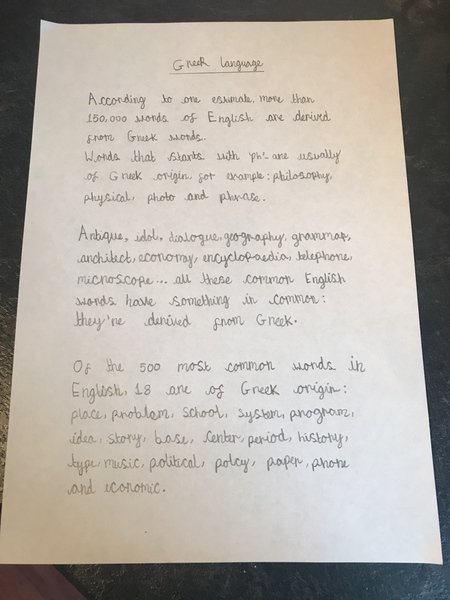 Greek language
According to one estimate, more than
150,000 words of English are derived
from Greek words.
Words that starts with 'ph'- are usually
of Greek origin for example: philosophy,
physical, photo and phrase.
Antique, idol, dialogue, geography, grammar,
architect, economy, encyclopaedia, telephone,
microscope... all these common English
words have something in common:
they're derived from Greek.
Of the 500 most common words in
English, 18 are of Greek origin:
place, problem, school, system, program,
idea, story, base, center, period, history,
type, music, political, polcy, paper, phone
and economic.